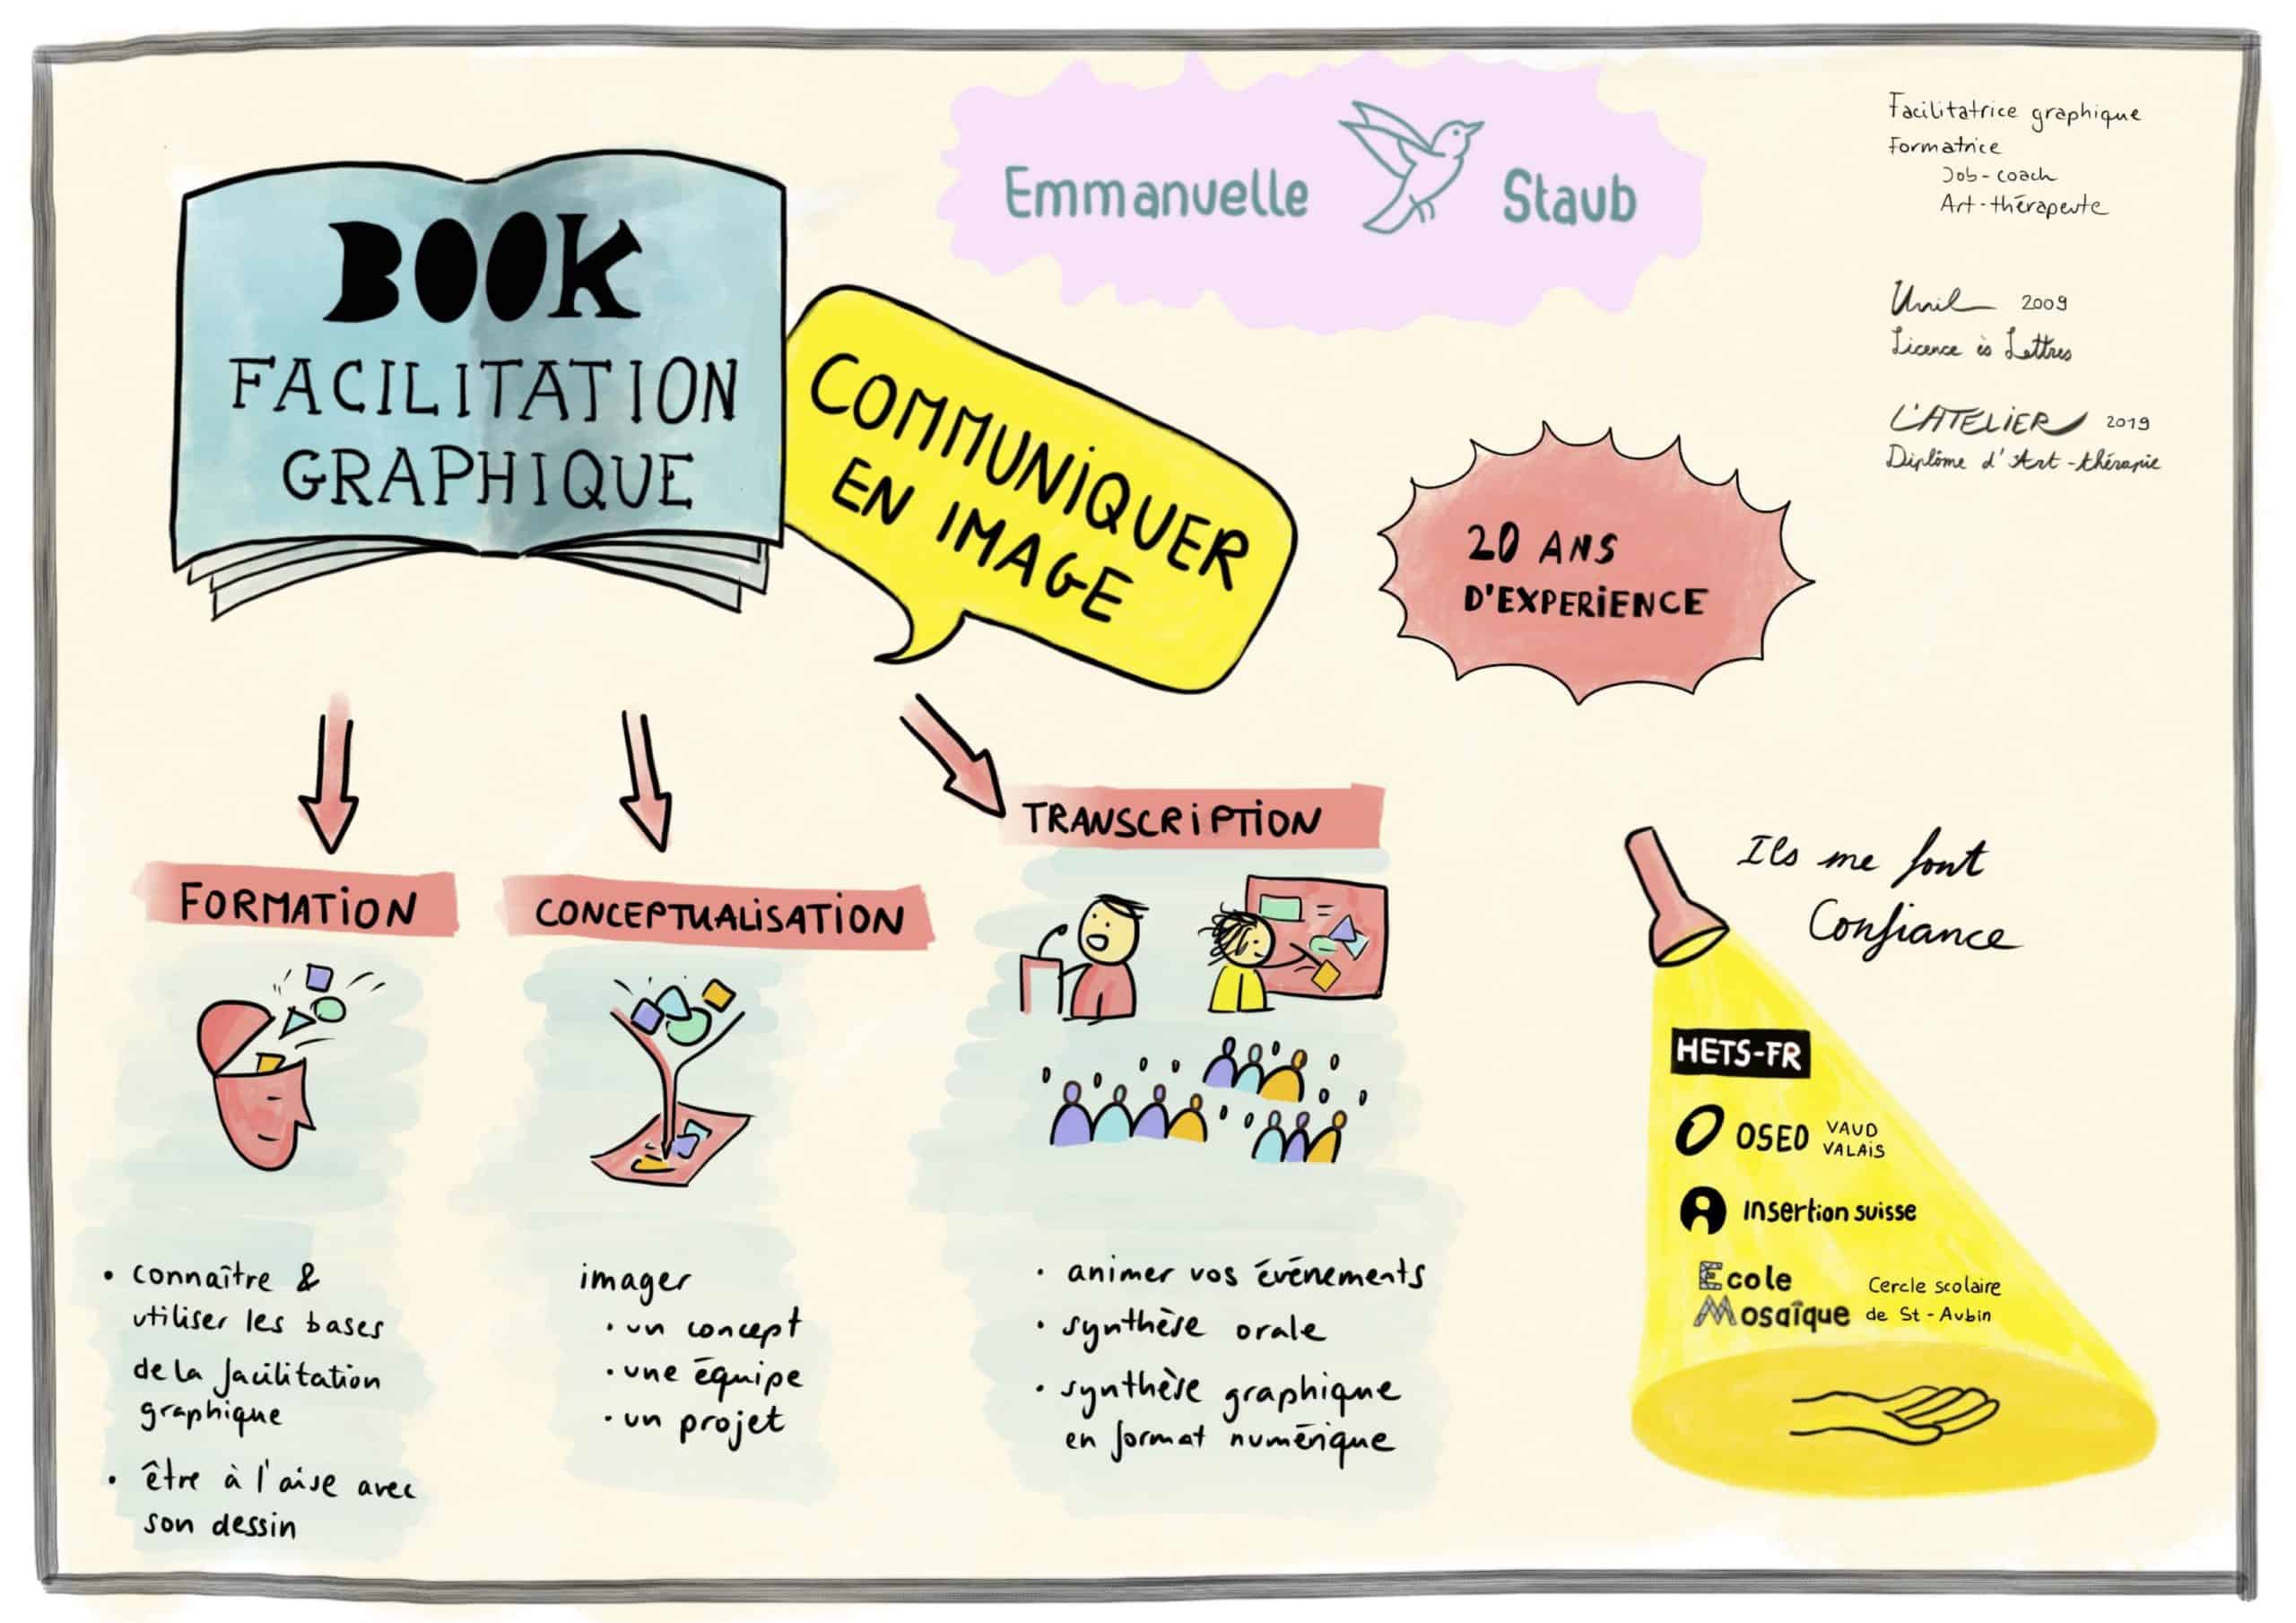 BOOK
FACILITATION
GRAPHIQUE
COMMUNIQUER
EN IMAGE
Emmanuelle Staub
Facilitatrice graphique
Formatrice
Job-coach
Art-thérapeute
Unil 2009
Licence ès Lettres
L'ATELIER 2019
Diplôme d'Art-thérapie
20 ANS
D'EXPERIENCE
FORMATION
connaître &
utiliser les bases
de la facilitation
graphique
être à l'aise avec
son dessin
CONCEPTUALISATION
imager
un concept
une équipe
un projet
TRANSCRIPTION
animer vos événements
synthèse orale
synthèse graphique
en format numérique
Ils me font
Confiance
HETS-FR
OSEO VAUD
VALAIS
Insertion suisse
Ecole
Mosaïque
Cercle scolaire
de St-Aubin